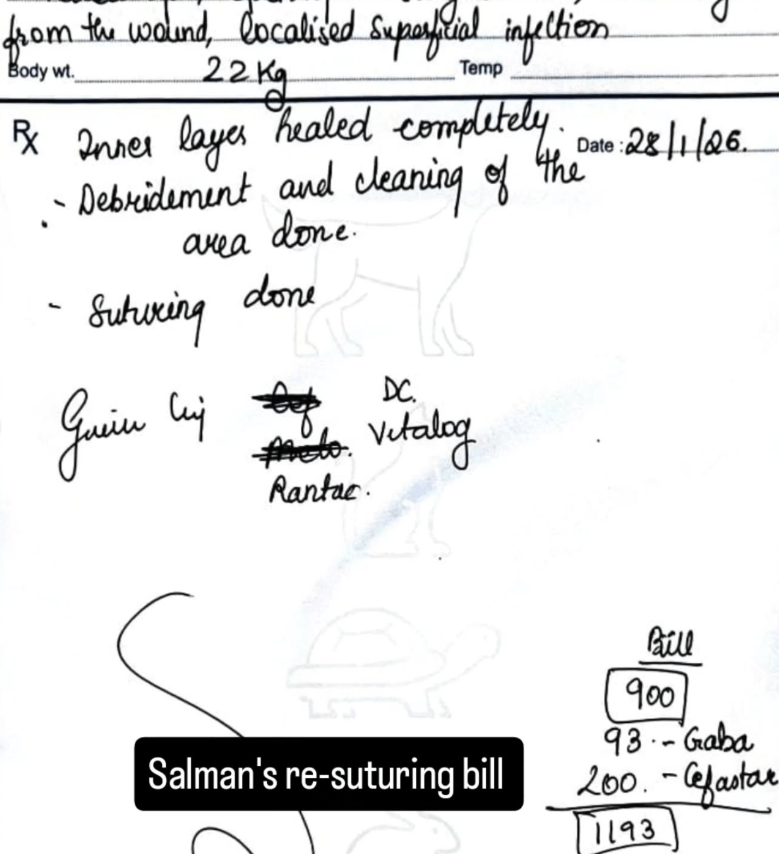 from the wound, localised superficial infection
Body wt. 22 Kg Temp
Rx Inner layer healed completely. Date: 28/1/26.
- Debridement and cleaning of the
area done.
- Suturing done
Inj DC.
Vitalog
Rantac.
Bill
900
93 - Gaba
200. - Cefastar
1193
Salman's re-suturing bill